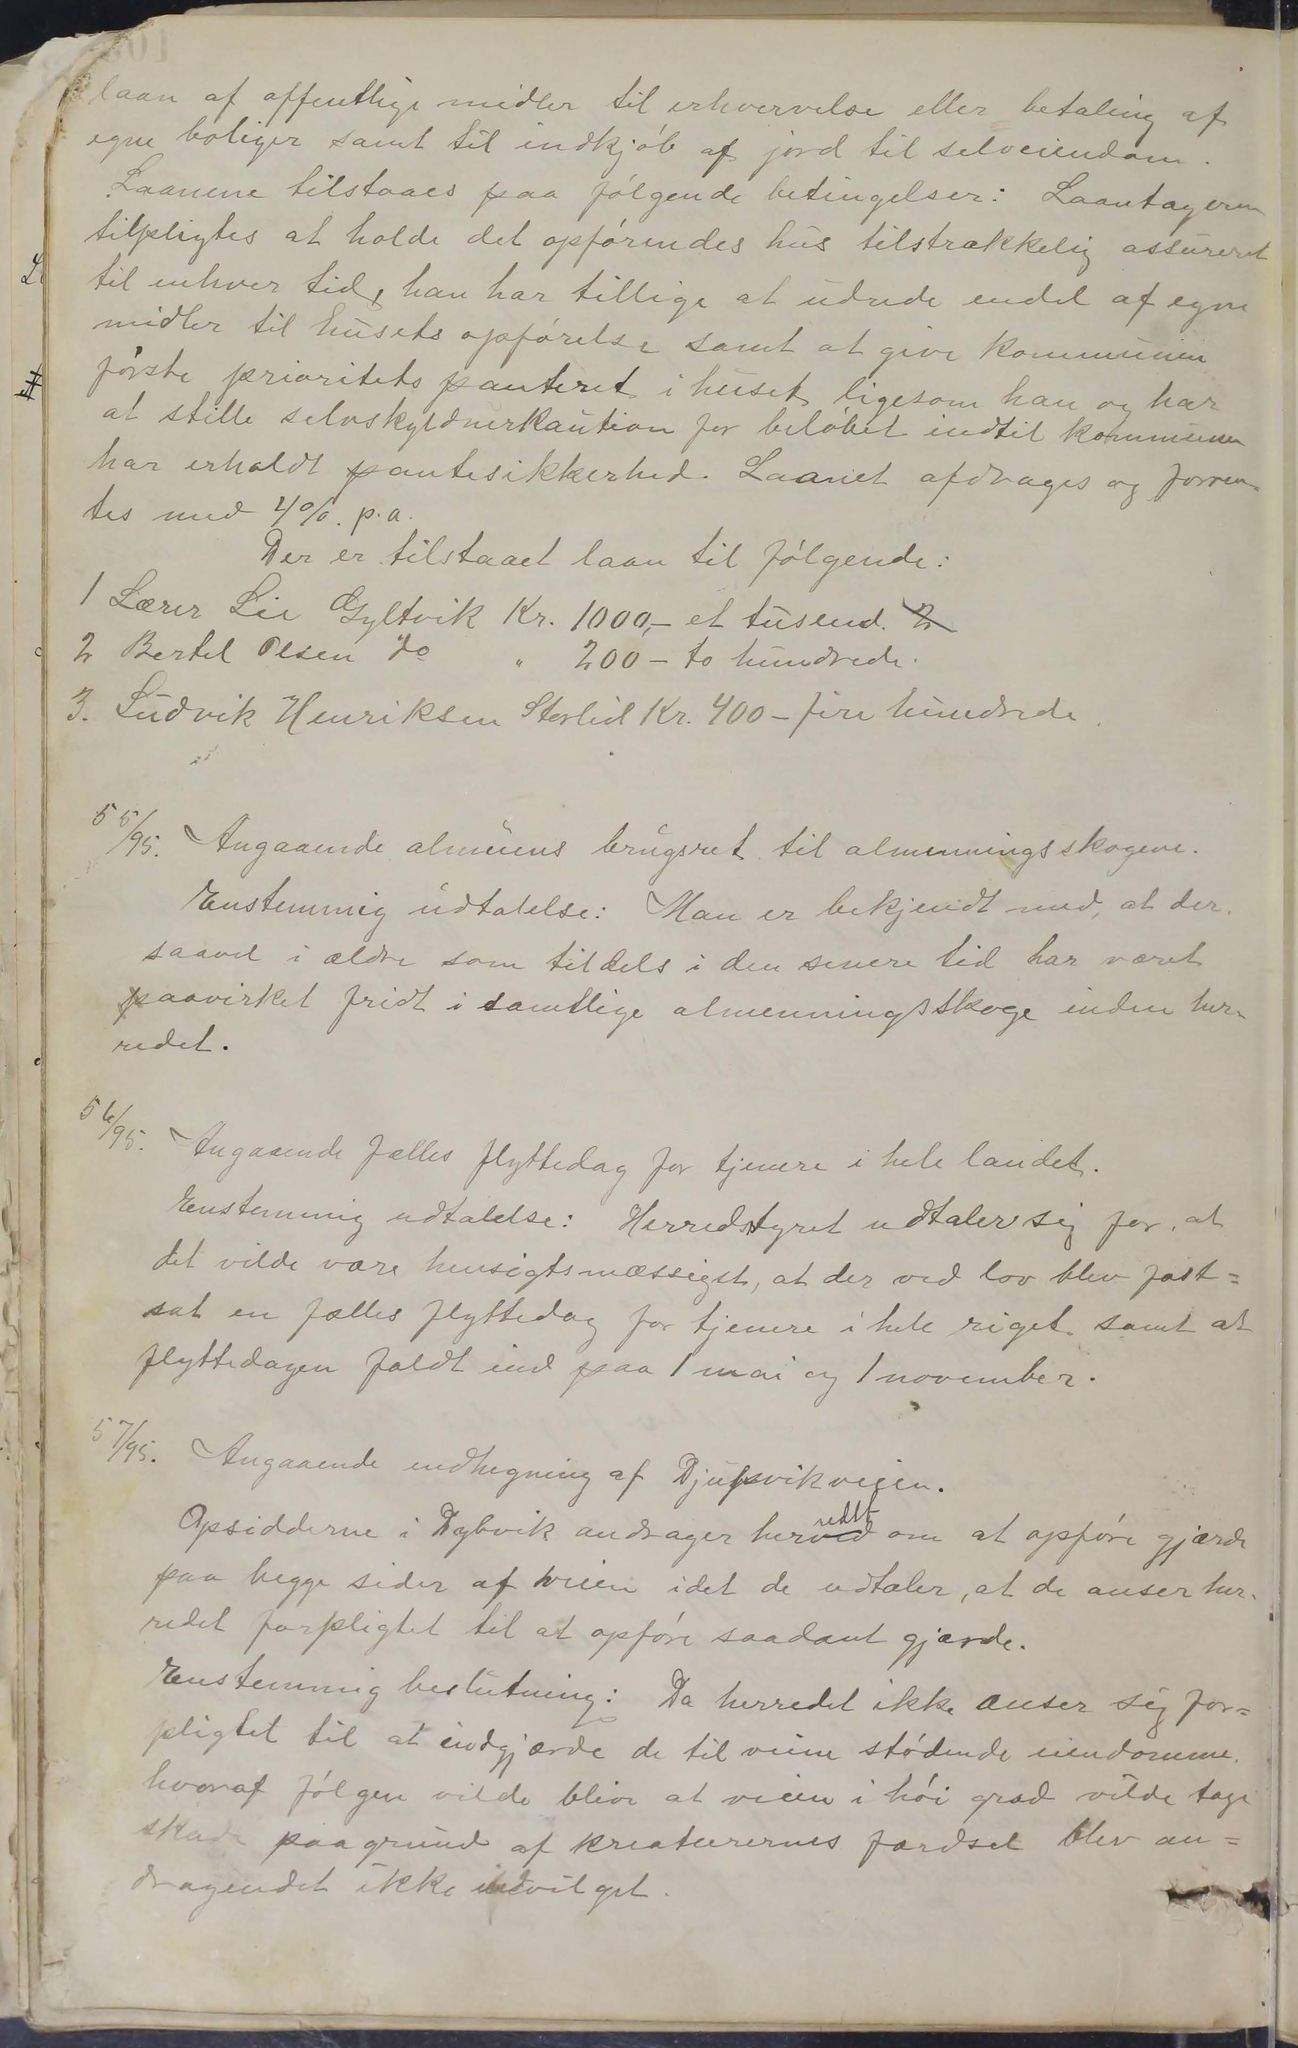 laan af offentlige midler til erhvervelse eller betaling af
egne boliger samt til indkjöb af jord til selveiendom.
Laanene tilstaaes paa fölgende betingelser: Laantageren
tilpligtes at holde det opförendes hus tilstrækkelig assureret
til enhver tid, han har tillige at udrede endel af egne
midler til husets opförelse samt at give kommunen
förste prioritets panteret i huset ligesom han og har
at stille selvskyldnerkaution for belöbet indtil kommunen
har erholdt pantesikkerhed. Laanet afdrages og forren-
tes med 4%. p.a.
Der er tilstaaet laan til fölgende:
1 Lærer Lie Gyltvik Kr. 1000,- et tusend.
2 Bertel Olsen do " 200 - to hundrede.
3. Ludvik Henriksen Storlid Kr. 400 - fire hundrede.
55/95. Angaaende almuens brugsret til almenningsskogene.
Enstemmig udtalelse: Man er bekjendt med, at der
saavel i ældre som tildels i den senere tid har været
paavirket fridt i samtlige almenningsskoge inden her-
redet.
56/95. Angaaende fælles flyttedag for tjenere i hele landet.
Enstemmig udtalelse: Herredstyret udtaler sig for, at
det vilde være hensigtsmæssigst, at der ved lov blev fast=
sat en fælles flyttedag for tjenere i hele riget samt at
flyttedagen faldt ind paa 1 mai og 1 november.
57/95. Angaaende indhegning af Djupvikveien.
Opsidderne i Dybvik andrager herved redet om at opföre gjærde
paa begge sider af veien idet de udtaler, at de anser her-
redet forpligtet til at opföre saadant gjærde.
Enstemmig beslutning: Da herredet ikke anser sig for=
pligtet til at indgjærde de til veien stödende eiendomme.
hvoraf fölgen vilde blive at veien i höi grad vilde tage
skade paa grund af kreaturernes færdsel blev an=
dragendet ikke indvilget.